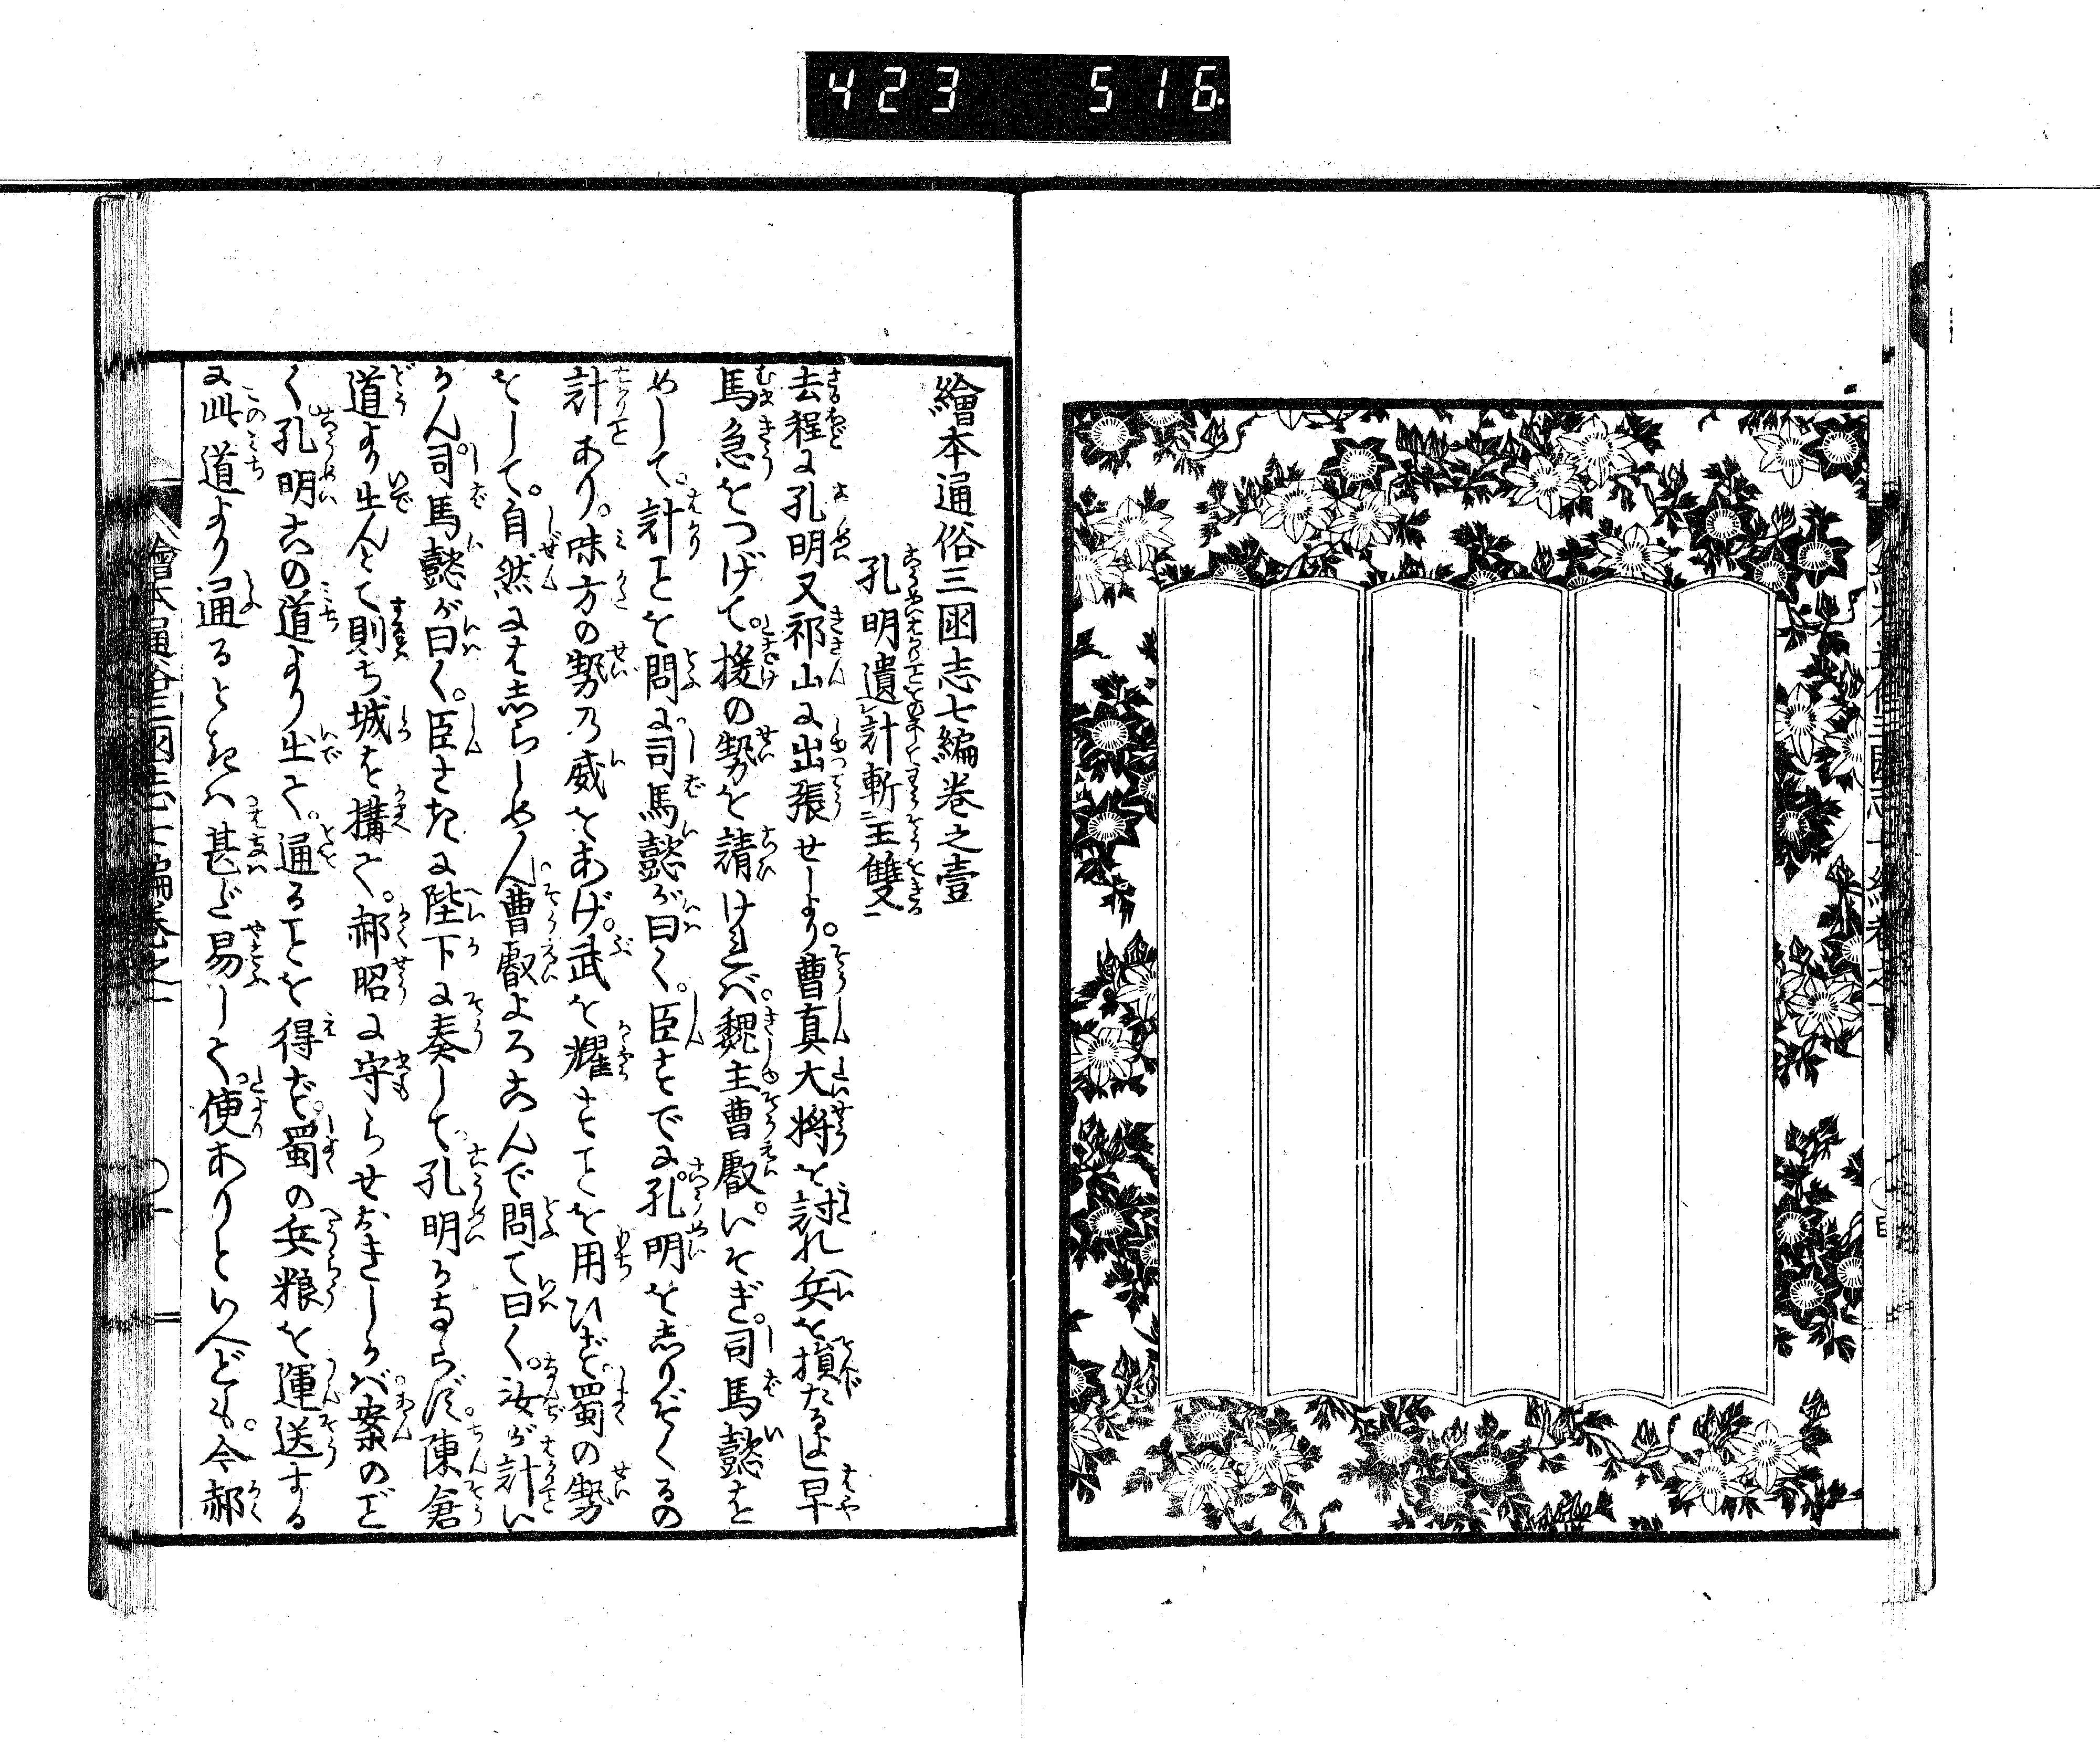 423 516
繪本通俗三國志七編卷之壹
孔明遺計斬王雙
去程に孔明又祁山に出張せしより。曹真大将を討れ兵を損たるよし早
馬急をつげて。援の勢を請ければ。魏主曹叡。いそぎ。司馬懿を
めして。計ことを問に司馬懿が曰く。臣すでに。孔明をしりぞくるの
計あり。味方の勢乃威をあげ。武を耀すことを用ひず。蜀の勢
をして。自然にはしらしめん。曹叡よろこんで問て曰く。汝が計い
かん。司馬懿が曰く。臣さきに陛下に奏して。孔明かならず。陳倉
道より出んとて則ち城を構て。郝昭に守らせおきしかば。案のご
く孔明この道より出て。通ることを得ず。蜀の兵粮を運送する
に此道より通るときハ甚だ易して使ありといへども。今郝
繪本通俗三國志七編卷之一